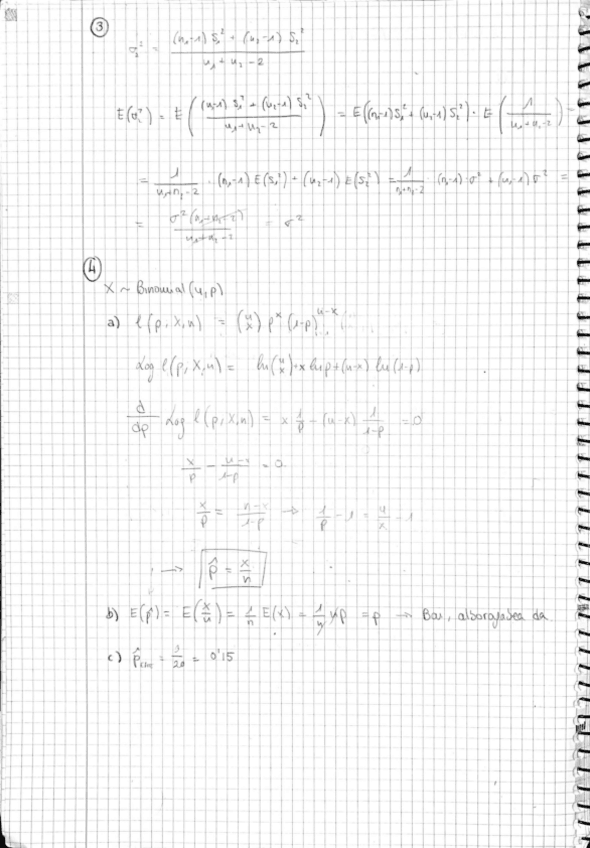 ③
σ₂² = ((n₁-1) S₁² + (n₂-1) S₂²) / (n₁+n₂-2)
E(σ₂²) = E( ((n₁-1) S₁² + (n₂-1) S₂²) / (n₁+n₂-2) ) = E((n₁-1)S₁² + (n₂-1)S₂²) · E( 1 / (n₁+n₂-2) ) =
= 1/(n₁+n₂-2) · (n₁-1) E(S₁²) + (n₂-1) E(S₂²) = 1/(n₁+n₂-2) · (n₁-1) · σ² + (n₂-1) σ² =
= σ² (n₁+n₂-2) / (n₁+n₂-2) = σ²
④
X ~ Binomial (n, p)
a) l(p, X, n) = (n x) p^x (1-p)^(n-x)
Log l(p, X, n) = ln(n x) + x ln p + (n-x) ln (1-p)
d/dp Log l(p, X, n) = x 1/p - (n-x) 1/(1-p) = 0
x/p - (n-x)/(1-p) = 0
x/p = (n-x)/(1-p) → 1/p - 1 = n/x - 1
→ p̂ = x/n
b) E(p̂) = E(x/n) = 1/n E(x) = 1/n np = p → Bai, alboragabea da
c) = 3/20 = 0'15